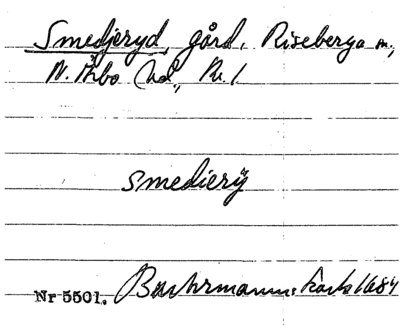 Smedjeryd, gård, Riseberga sn,
N. Åsbo hd, Kr. l
smedierÿ
Nr 5501. Buhrmanns karta 1684